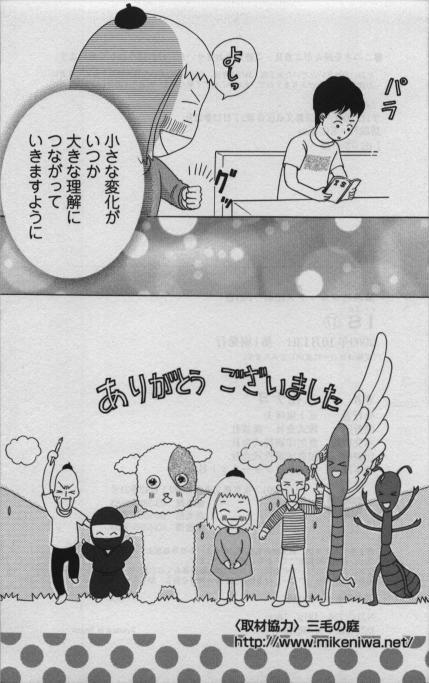 パラ
IS
よしっ
グッ
小さな変化が
いつか
大きな理解に
つながって
いきますように
ありがとう ございました
〈取材協力〉三毛の庭
http://www.mikeniwa.net/